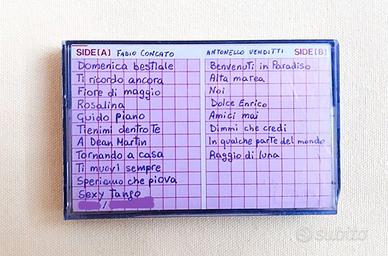 SIDE[A] FABIO CONCATO
Domenica bestiale
Ti ricordo ancora
Fiore di maggio
Rosalina
Guido piano
Tienimi dentro Te
A Dean Martin
Tornando a casa
Ti muovi sempre
Speriamo che piova
Sexy tango
/
ANTONELLO VENDITTI SIDE[B]
Benvenuti in Paradiso
Alta marea
Noi
Dolce Enrico
Amici mai
Dimmi che credi
In qualche parte del mondo
Raggio di luna
subito